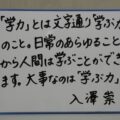 「学力」とは文字通り「学ぶ力」
のこと。日常のあらゆること
から人間は学ぶことができ
ます。大事なのは「学ぶ力」
入澤崇